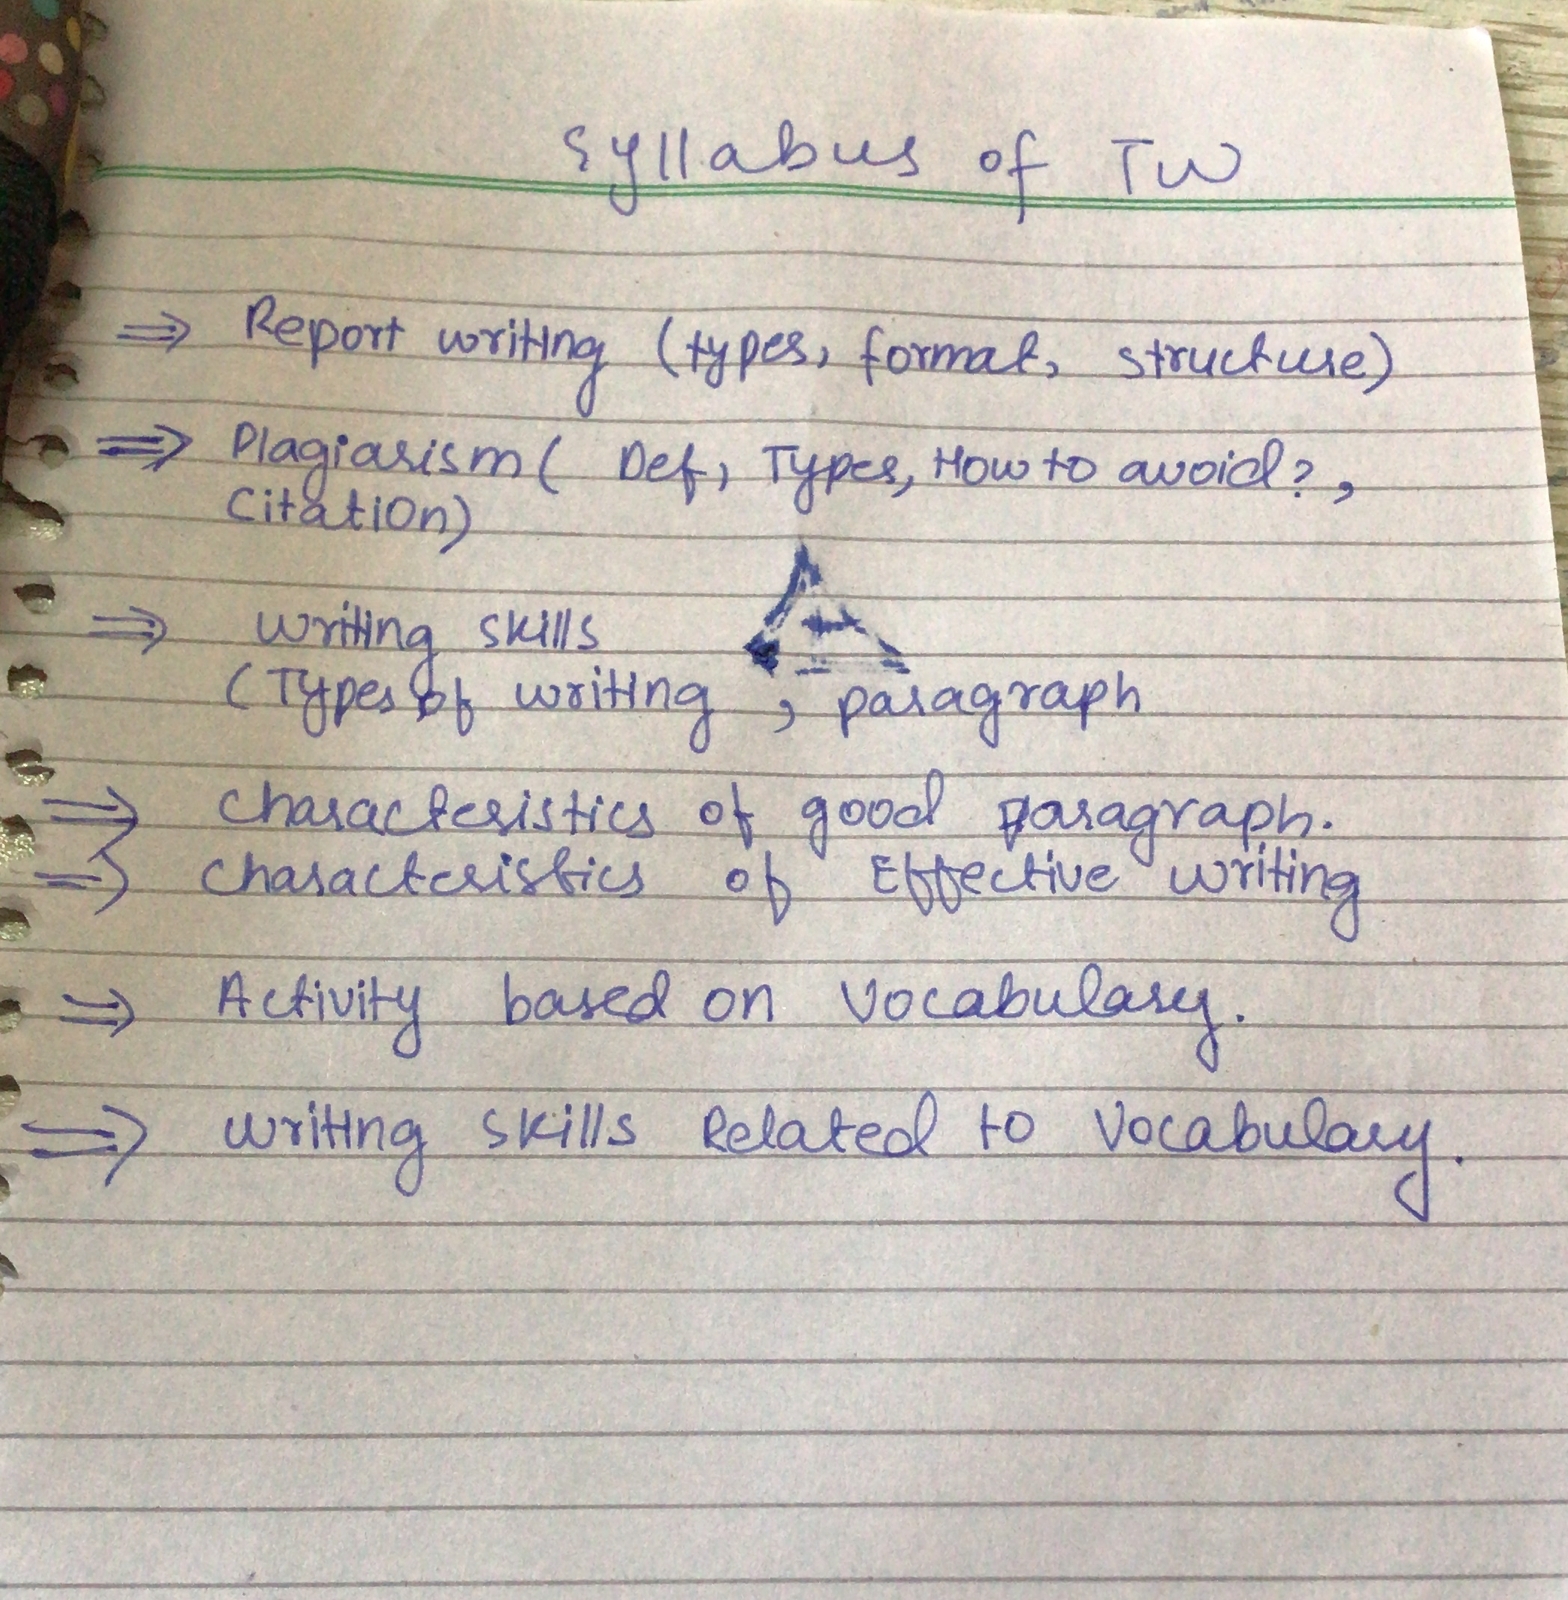 Syllabus of TW
⇒ Report writing (types, format, structure)
⇒ Plagiarism ( Def, Types, How to avoid?,
Citation)
⇒ writing skills
(Types of writing , paragraph
⇒ characteristics of good paragraph.
⇒ characteristics of Effective writing
⇒ Activity based on Vocabulary.
⇒ writing skills Related to Vocabulary.